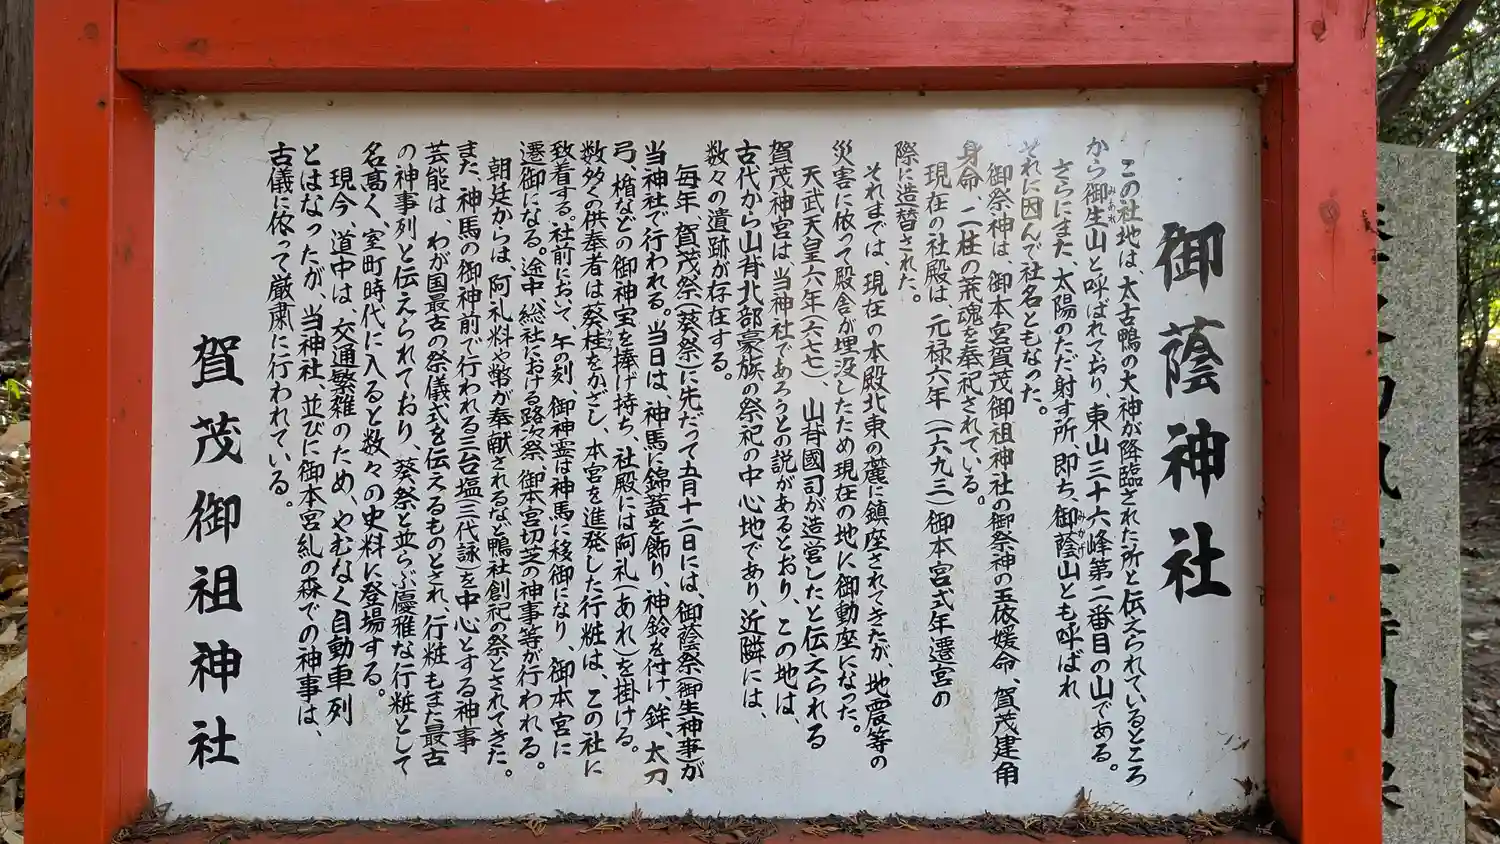 御蔭神社
この社地は、太古鴨の大神が降臨された所と伝えられているところ
から御生山と呼ばれており、東山三十六峰第二番目の山である。
みあれ
さらにまた、太陽のただ射す所、即ち、御蔭山とも呼ばれ
みかげ
それに因んで社名ともなった。
御祭神は、御本宮賀茂御祖神社の御祭神の玉依媛命、賀茂建角
身命、二柱の荒魂を奉祀されている。
現在の社殿は、元禄六年(一六九三)御本宮式年遷宮の
際に造替された。
それまでは、現在の本殿北東の麓に鎮座されてきたが、地震等の
災害に依って殿舎が埋没したため現在の地に御動座になった。
天武天皇六年(六七七)、山背國司が造営したと伝えられる
賀茂神宮は、当神社であろうとの説があるとおり、この地は、
古代から山背北部豪族の祭祀の中心地であり、近隣には、
数々の遺跡が存在する。
毎年、賀茂祭(葵祭)に先だって五月十二日には、御蔭祭(御生神事)が
当神社で行われる。当日は、神馬に錦蓋を飾り、神鈴を付け、鉾、太刀、
弓、楯などの御神宝を捧げ持ち、社殿には阿礼(あれ)を掛ける。
数多くの供奉者は葵桂をかざし、本宮を進発した行粧は、この社に
かつら
致着する。社前において、午の刻、御神霊は神馬に移御になり、御本宮に
遷御になる。途中、総社における路次祭、御本宮切芝の神事等が行われる。
朝廷からは、阿礼料や幣が奉献されるなど鴨社創祀の祭とされてきた。
また、神馬の御神前で行われる三台塩(三代詠)を中心とする神事
芸能は、わが国最古の祭儀式を伝えるものとされ、行粧もまた最古
の神事列と伝えられており、葵祭と並らぶ優雅な行粧として
名高く、室町時代に入ると数々の史料に登場する。
現今、道中は、交通繁雑のため、やむなく自動車列
とはなったが、当神社、並びに御本宮糺の森での神事は、
古儀に依って厳粛に行われている。
賀茂御祖神社